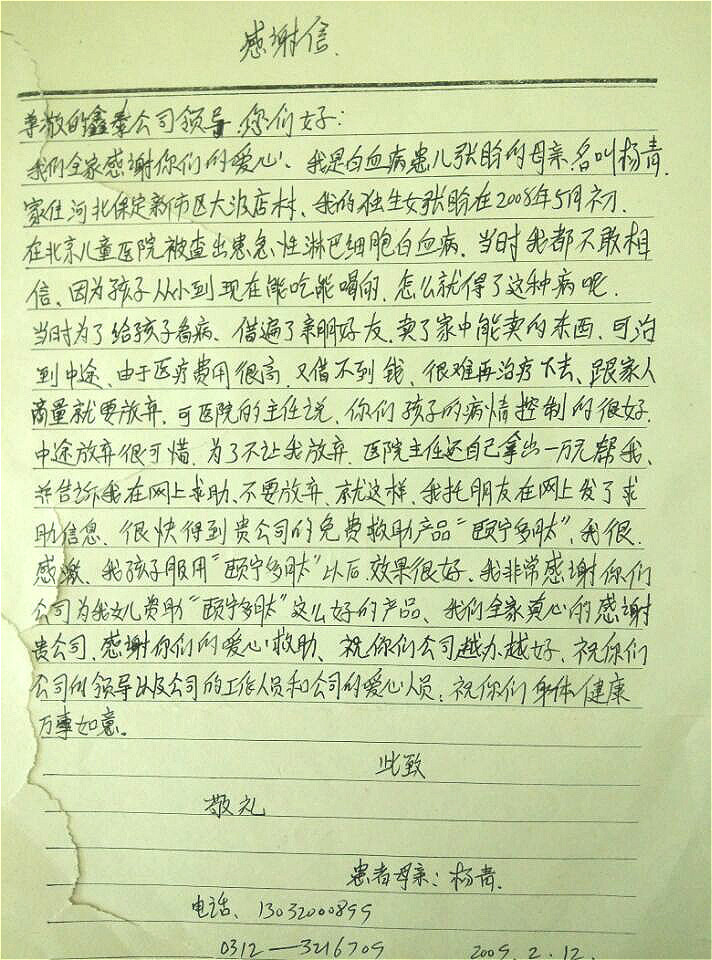 感谢信.
尊敬的鑫泰公司领导.你们好:
我们全家感谢你们的爱心、我是白血病患儿张盼的母亲.名叫杨青.
家住河北保定新市区大汲店村、我的独生女张盼在2008年5月初.
在北京儿童医院被查出患急性淋巴细胞白血病.当时我都不敢相
信、因为孩子从小到现在能吃能喝的.怎么就得了这种病呢.
当时为了给孩子看病、借遍了亲朋好友.卖了家中能卖的东西.可治
到中途、由于医疗费用很高.又借不到钱、很难再治疗下去、跟家人
商量就要放弃.可医院的主任说.你们孩子的病情控制的很好.
中途放弃很可惜.为了不让我放弃.医院主任还自己拿出一万元帮我、
并告诉我在网上求助、不要放弃.就这样.我托朋友在网上发了求
助信息.很快得到贵公司的免费救助产品“颐宁多肽”.我很.
感激、我孩子服用“颐宁多肽”以后.效果很好.我非常感谢你们
公司为我女儿资助“颐宁多肽”这么好的产品、我们全家真心的感谢
贵公司.感谢你们的爱心救助、祝你们公司越办越好.祝你们
公司的领导以及公司的工作人员和公司的爱心人员:祝你们身体健康
万事如意。
此致
敬礼
患者母亲:杨青.
电话、13032000899
0312—3216709 2009.2.12.